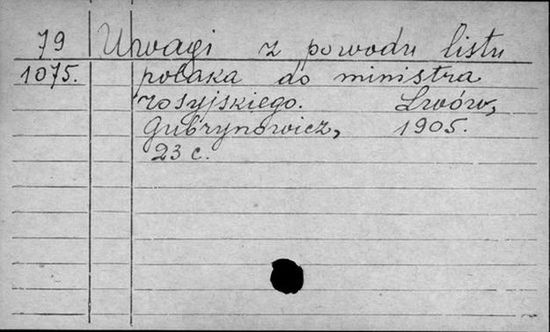 79 Uwagi z powodu listu
1075. polaka do ministra
rosyjskiego. Lwów,
Gubrynowicz, 1905.
23 c.